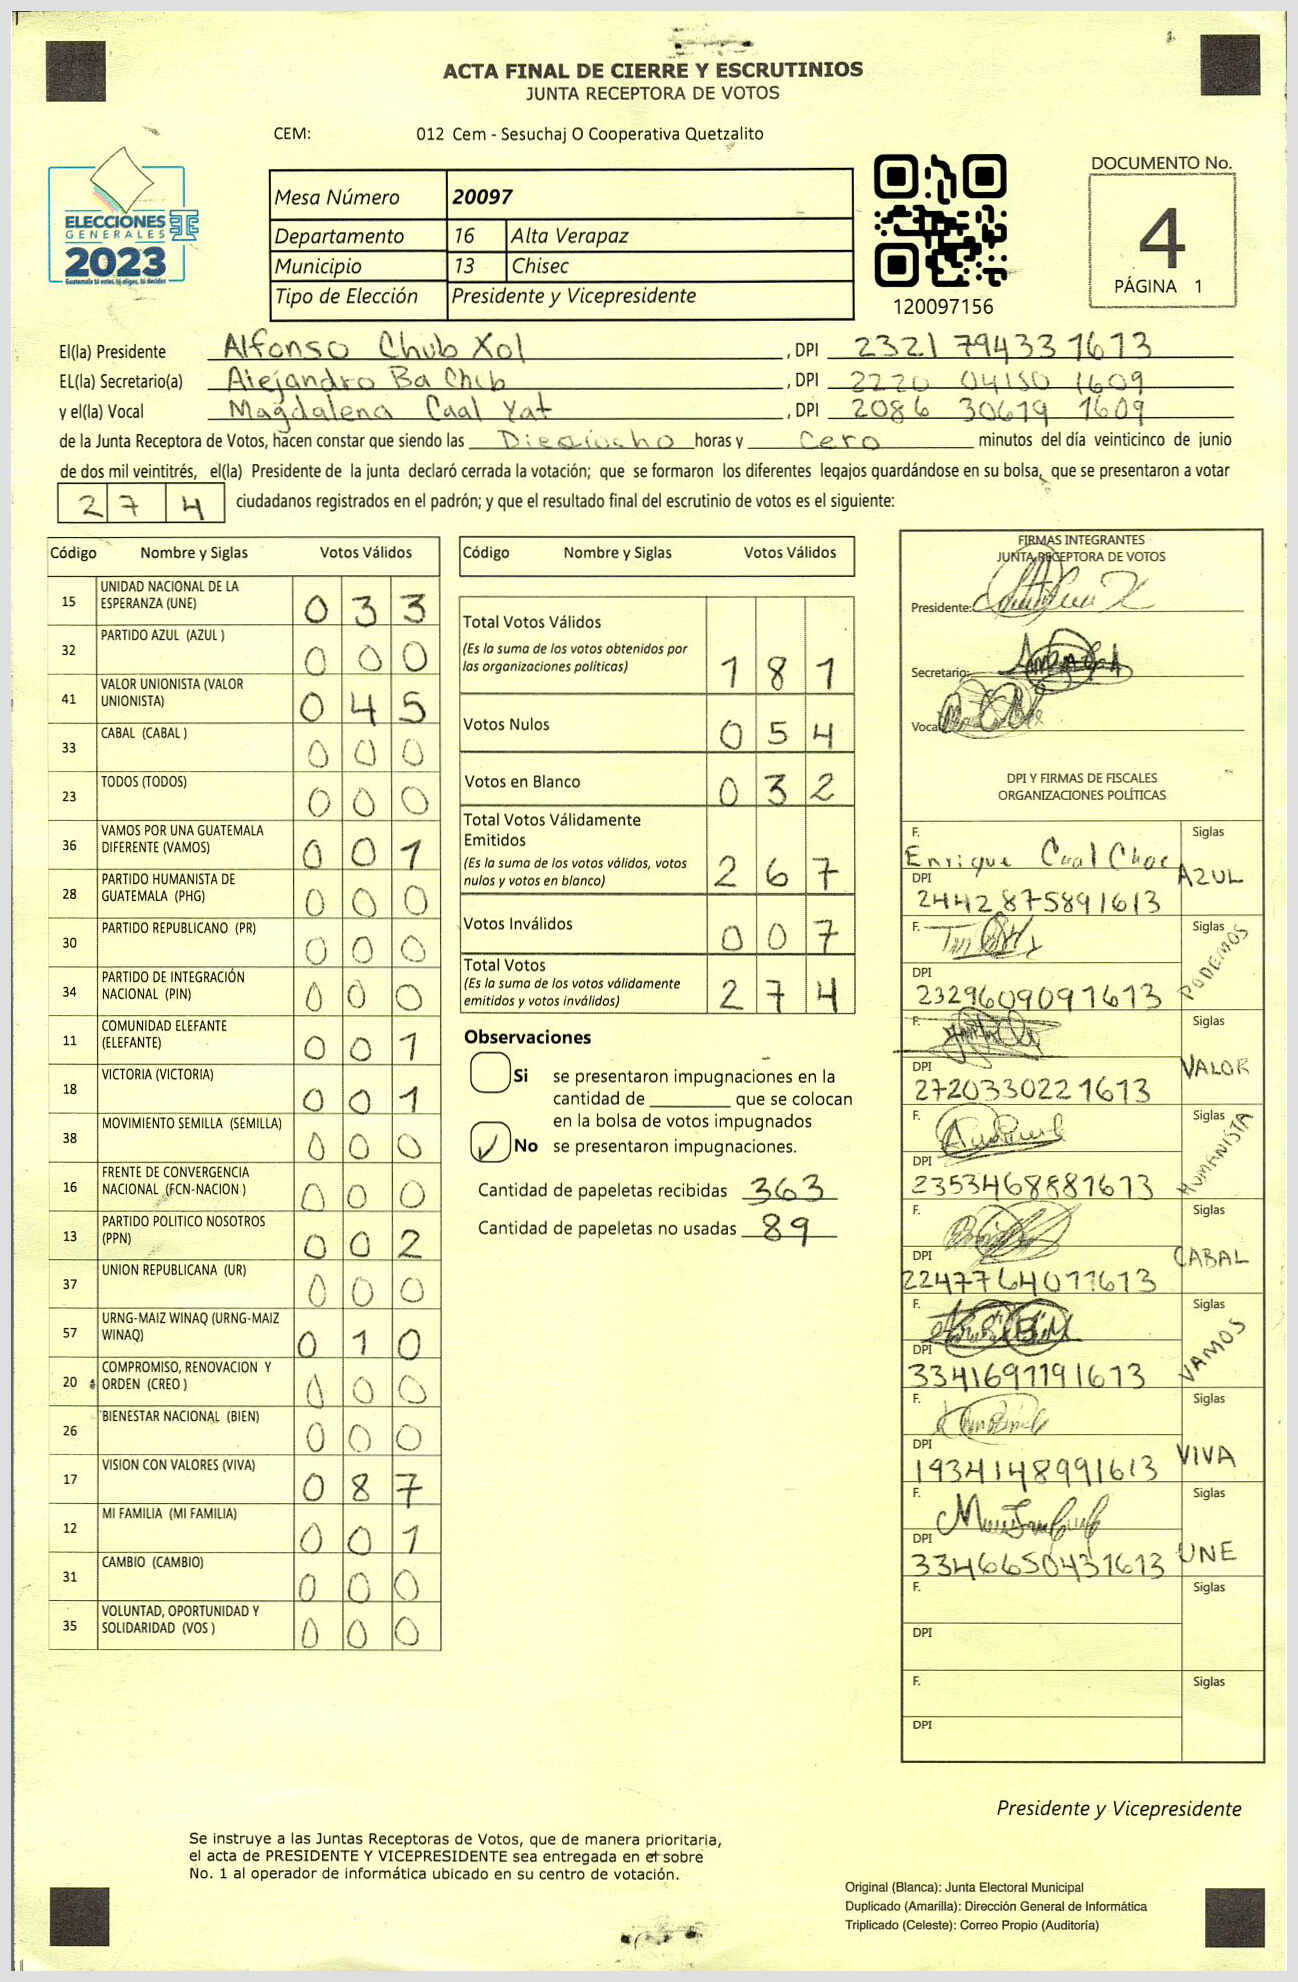 ACTA FINAL DE CIERRE Y ESCRUTINIOS
JUNTA RECEPTORA DE VOTOS
CEM: 012 Cem - Sesuchaj O Cooperativa Quetzalito
ELECCIONES
GENERALES
2023
Guatemala tú votas, tú eliges, tú decides
Mesa Número 20097
Departamento 16 Alta Verapaz
Municipio 13 Chisec
Tipo de Elección Presidente y Vicepresidente
120097156
DOCUMENTO No.
4
PÁGINA 1
El(la) Presidente Alfonso Chub Xol , DPI 2321 79433 1613
EL(la) Secretario(a) Alejandro Ba Chub , DPI 2220 04150 1609
y el(la) Vocal Magdalena Caal Yat , DPI 2086 30679 1609
de la Junta Receptora de Votos, hacen constar que siendo las Dieciocho horas y Cero minutos del día veinticinco de junio
de dos mil veintitrés, el(la) Presidente de la junta declaró cerrada la votación; que se formaron los diferentes legajos guardándose en su bolsa, que se presentaron a votar
2 7 4 ciudadanos registrados en el padrón; y que el resultado final del escrutinio de votos es el siguiente:
Código Nombre y Siglas Votos Válidos
15 UNIDAD NACIONAL DE LA ESPERANZA (UNE) 0 3 3
32 PARTIDO AZUL (AZUL ) 0 0 0
41 VALOR UNIONISTA (VALOR UNIONISTA) 0 4 5
33 CABAL (CABAL ) 0 0 0
23 TODOS (TODOS) 0 0 0
36 VAMOS POR UNA GUATEMALA DIFERENTE (VAMOS) 0 0 1
28 PARTIDO HUMANISTA DE GUATEMALA (PHG) 0 0 0
30 PARTIDO REPUBLICANO (PR) 0 0 0
34 PARTIDO DE INTEGRACIÓN NACIONAL (PIN) 0 0 0
11 COMUNIDAD ELEFANTE (ELEFANTE) 0 0 1
18 VICTORIA (VICTORIA) 0 0 1
38 MOVIMIENTO SEMILLA (SEMILLA) 0 0 0
16 FRENTE DE CONVERGENCIA NACIONAL (FCN-NACION ) 0 0 0
13 PARTIDO POLITICO NOSOTROS (PPN) 0 0 2
37 UNION REPUBLICANA (UR) 0 0 0
57 URNG-MAIZ WINAQ (URNG-MAIZ WINAQ) 0 1 0
20 COMPROMISO, RENOVACION Y ORDEN (CREO ) 0 0 0
26 BIENESTAR NACIONAL (BIEN) 0 0 0
17 VISION CON VALORES (VIVA) 0 8 7
12 MI FAMILIA (MI FAMILIA) 0 0 1
31 CAMBIO (CAMBIO) 0 0 0
35 VOLUNTAD, OPORTUNIDAD Y SOLIDARIDAD (VOS ) 0 0 0
Código Nombre y Siglas Votos Válidos
Total Votos Válidos
(Es la suma de los votos obtenidos por
las organizaciones políticas) 1 8 1
Votos Nulos 0 5 4
Votos en Blanco 0 3 2
Total Votos Válidamente
Emitidos
(Es la suma de los votos válidos, votos
nulos y votos en blanco) 2 6 7
Votos Inválidos 0 0 7
Total Votos
(Es la suma de los votos válidamente
emitidos y votos inválidos) 2 7 4
Observaciones
Si se presentaron impugnaciones en la
cantidad de ________ que se colocan
en la bolsa de votos impugnados
No se presentaron impugnaciones.
Cantidad de papeletas recibidas 363
Cantidad de papeletas no usadas 89
FIRMAS INTEGRANTES
JUNTA RECEPTORA DE VOTOS
Presidente:
Secretario:
Vocal
DPI Y FIRMAS DE FISCALES
ORGANIZACIONES POLÍTICAS
F. Enrique Caal Choc Siglas AZUL
DPI 2442875891613
F. Siglas PODEMOS
DPI 2329609091613
F. Siglas VALOR
DPI 2720330221613
F. Siglas HUMANISTA
DPI 2353468881613
F. Siglas CABAL
DPI 2247764071613
F. Siglas VAMOS
DPI 3341697191613
F. Siglas VIVA
DPI 1934148991613
F. Siglas UNE
DPI 3346650431613
F. Siglas
DPI
F. Siglas
DPI
Presidente y Vicepresidente
Se instruye a las Juntas Receptoras de Votos, que de manera prioritaria,
el acta de PRESIDENTE Y VICEPRESIDENTE sea entregada en el sobre
No. 1 al operador de informática ubicado en su centro de votación.
Original (Blanca): Junta Electoral Municipal
Duplicado (Amarilla): Dirección General de Informática
Triplicado (Celeste): Correo Propio (Auditoría)